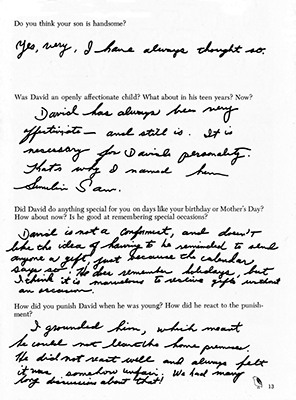 Do you think your son is handsome?
Yes, very, I have always thought so.
Was David an openly affectionate child? What about in his teen years? Now?
David has always been very
affectionate – and still is. It is
necessary for David's personality.
That's why I named him
Sam.
Did David do anything special for you on days like your birthday or Mother's Day?
How about now? Is he good at remembering special occasions?
David is not a conformist, and doesn't
like the idea of having to be reminded to send
anyone a gift, just because the calendar
says so! He does remember holidays, but
I think it is marvelous to receive gifts without
an occasion.
How did you punish David when he was young? How did he react to the punish-
ment?
I grounded him, which meant
he could not leave the home premises.
He did not react well and always felt
it was somehow unfair. We had many
long discussions about that!
13